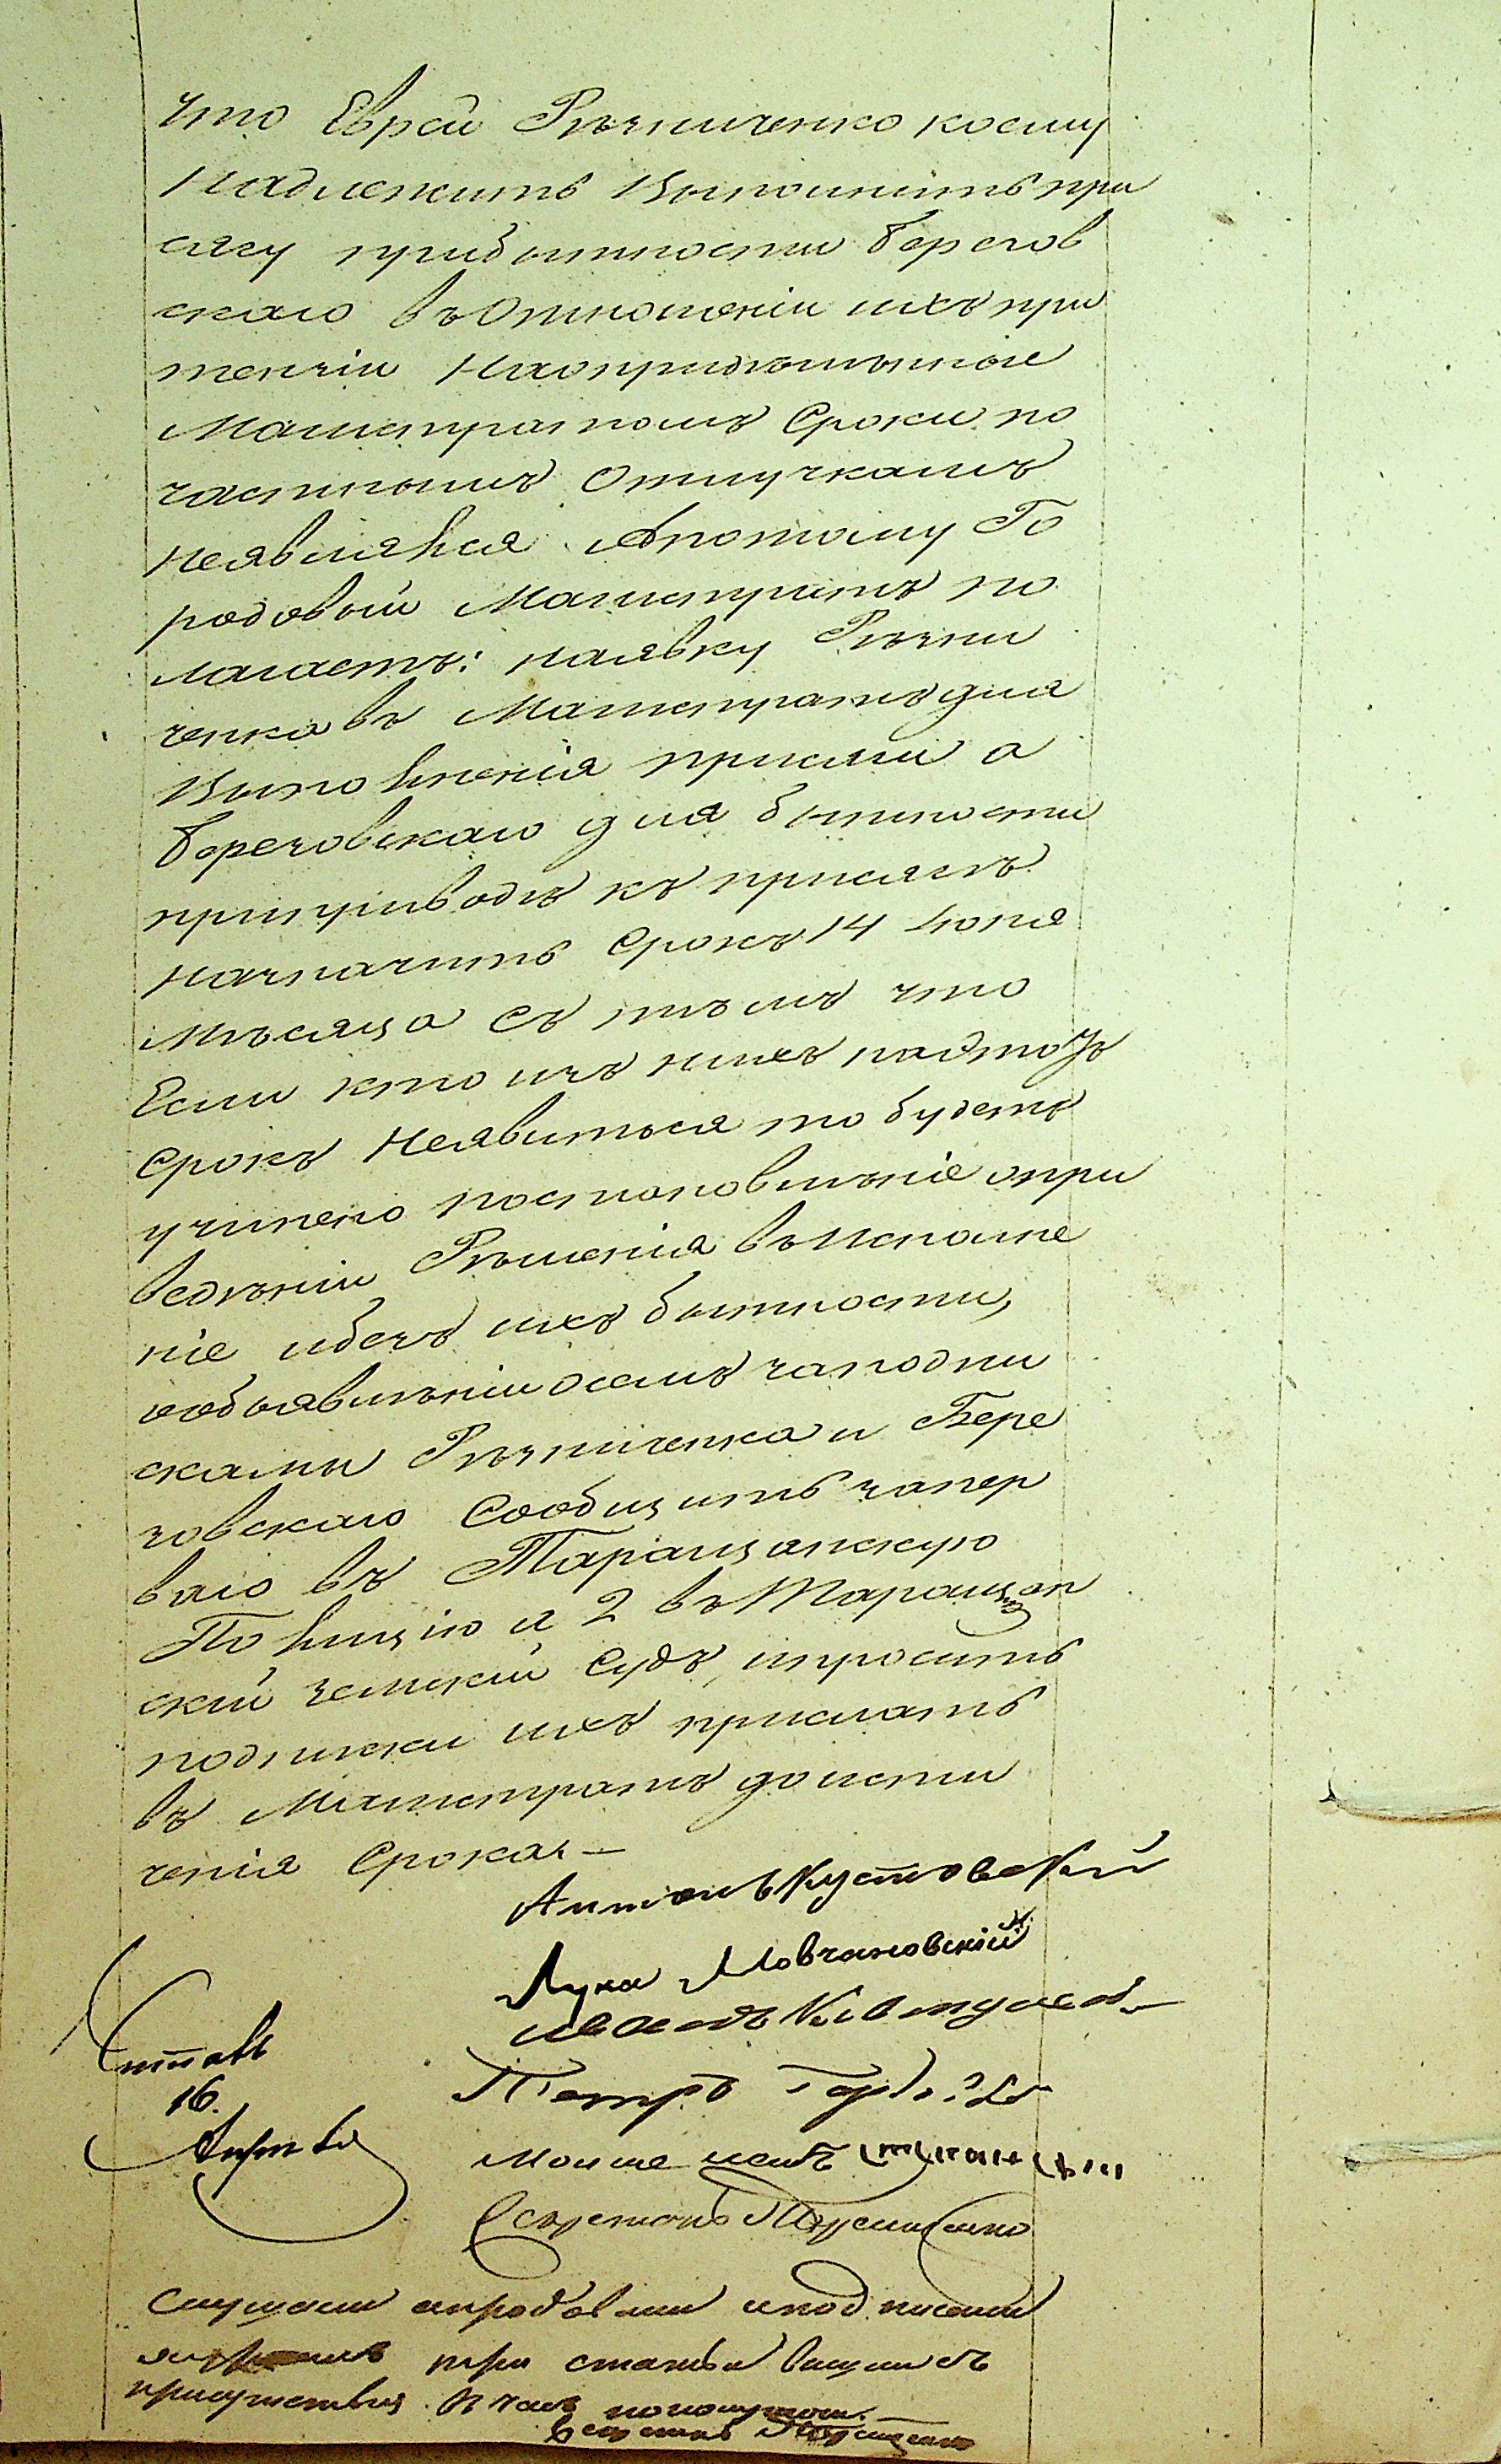 что Еврей Рѣзниченко коему
Надлежитъ Выполнить при
сягу прибытности Берегов
скаго въ Отношеніи ихъ при
тензіи Наопридѣлѣнные
Магистратомъ Сроки по
частнымъ Отлучкамъ
Неявлялся Апотому Го
родовый Магистратъ по
лагаетъ: наявку Рѣзни
ченка въ Магистратъ для
Выполненія присяги а
Береговскаго для бытности
припріводѣ къ присягѣ
Назначить Срокъ 14 Іюня
Мѣсяца съ тѣмъ что
Если кто изъ нихъ наэтотъ
Срокъ Неявиться то будетъ
учинено постоновлѣніе опри
ведѣніи Рѣшенія въ Исполне
ніе ибезъ ихъ бытности,
ообъявлѣніи осемъ заподпи
сками Рѣзниченка и Бере
говскаго Сообщить запер
ваго въ Таращанскую
Полицію а 2 въ Таращан
скій Земскій Судъ, ипросить
подписки ихъ прислать
въ Магистратъ доисте
ченія Срока. —
Антонъ Кустовский
Лука Мовчановскій
Петръ
16.
Мошко
Секретарь
Слушали иподписали
три статьи вышелъ
присутствія
Секретарь